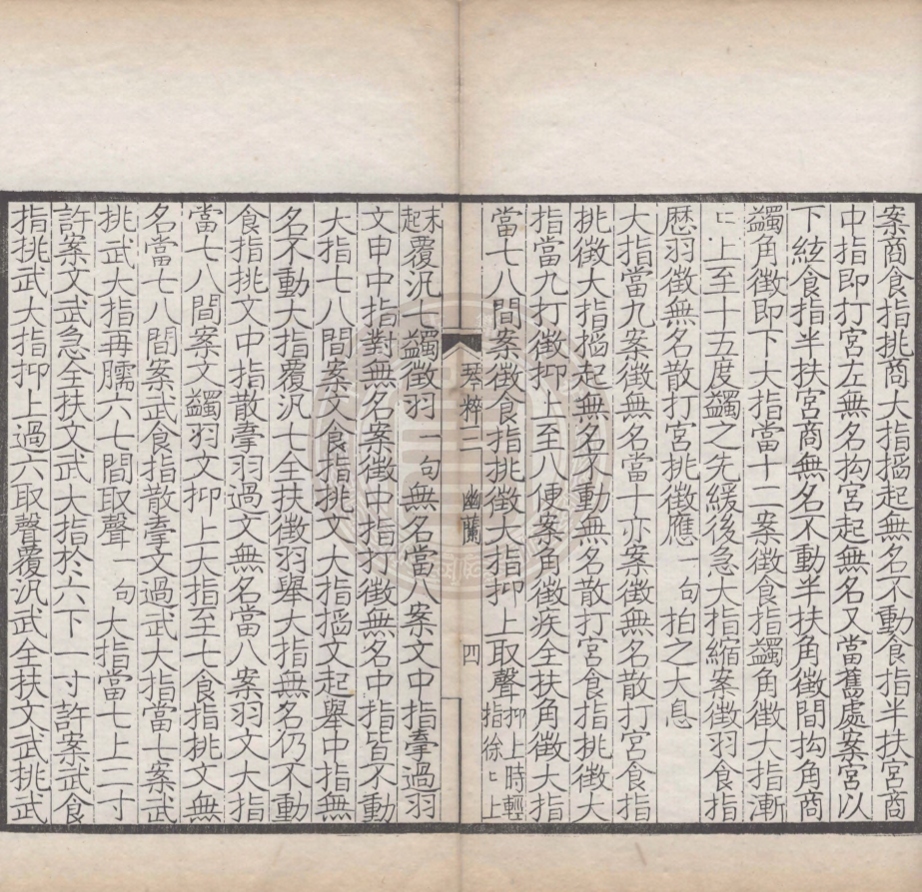 案商食指挑商大指搯起無名不動食指半扶宮商
中指即打宮左無名抅宮起無名又當舊處案宮以
下絃食指半扶宮商無名不動半扶角徵間抅角商
蠲角徵即下大指當十二案徵食指蠲角徵大指漸
〻上至十五度蠲之先緩後急大指縮案徵羽食指
歷羽徵無名散打宮挑徵應一句 拍之大息
大指當九案徵無名當十亦案徵無名散打宮食指
挑徵大指搯起無名不動無名散打宮食指挑徵大
指當九打徵抑上至八便案角徵疾全扶角徵大指
當七八間案徵食指挑徵大指抑上取聲抑上時輕指徐〻上
琴粹二 幽蘭 四
末起覆汎七蠲徵羽一句無名當八案文中指㩌過羽
文申中指對無名案徵中指打徵無名中指皆不動
大指七八間案文食指挑文大指搯文起舉中指無
名不動大指覆汎七全扶徵羽舉大指無名仍不動
食指挑文中指散㩌羽過文無名當八案羽文大指
當七八間案文蠲羽文抑上大指至七食指挑文無
名當七八間案武食指散㩌文過武大指當七案武
挑武大指再臑六七間取聲一句 大指當七上二寸
許案文武急全扶文武大指於六下一寸許案武食
指挑武大指抑上過六取聲覆汎武全扶文武挑武